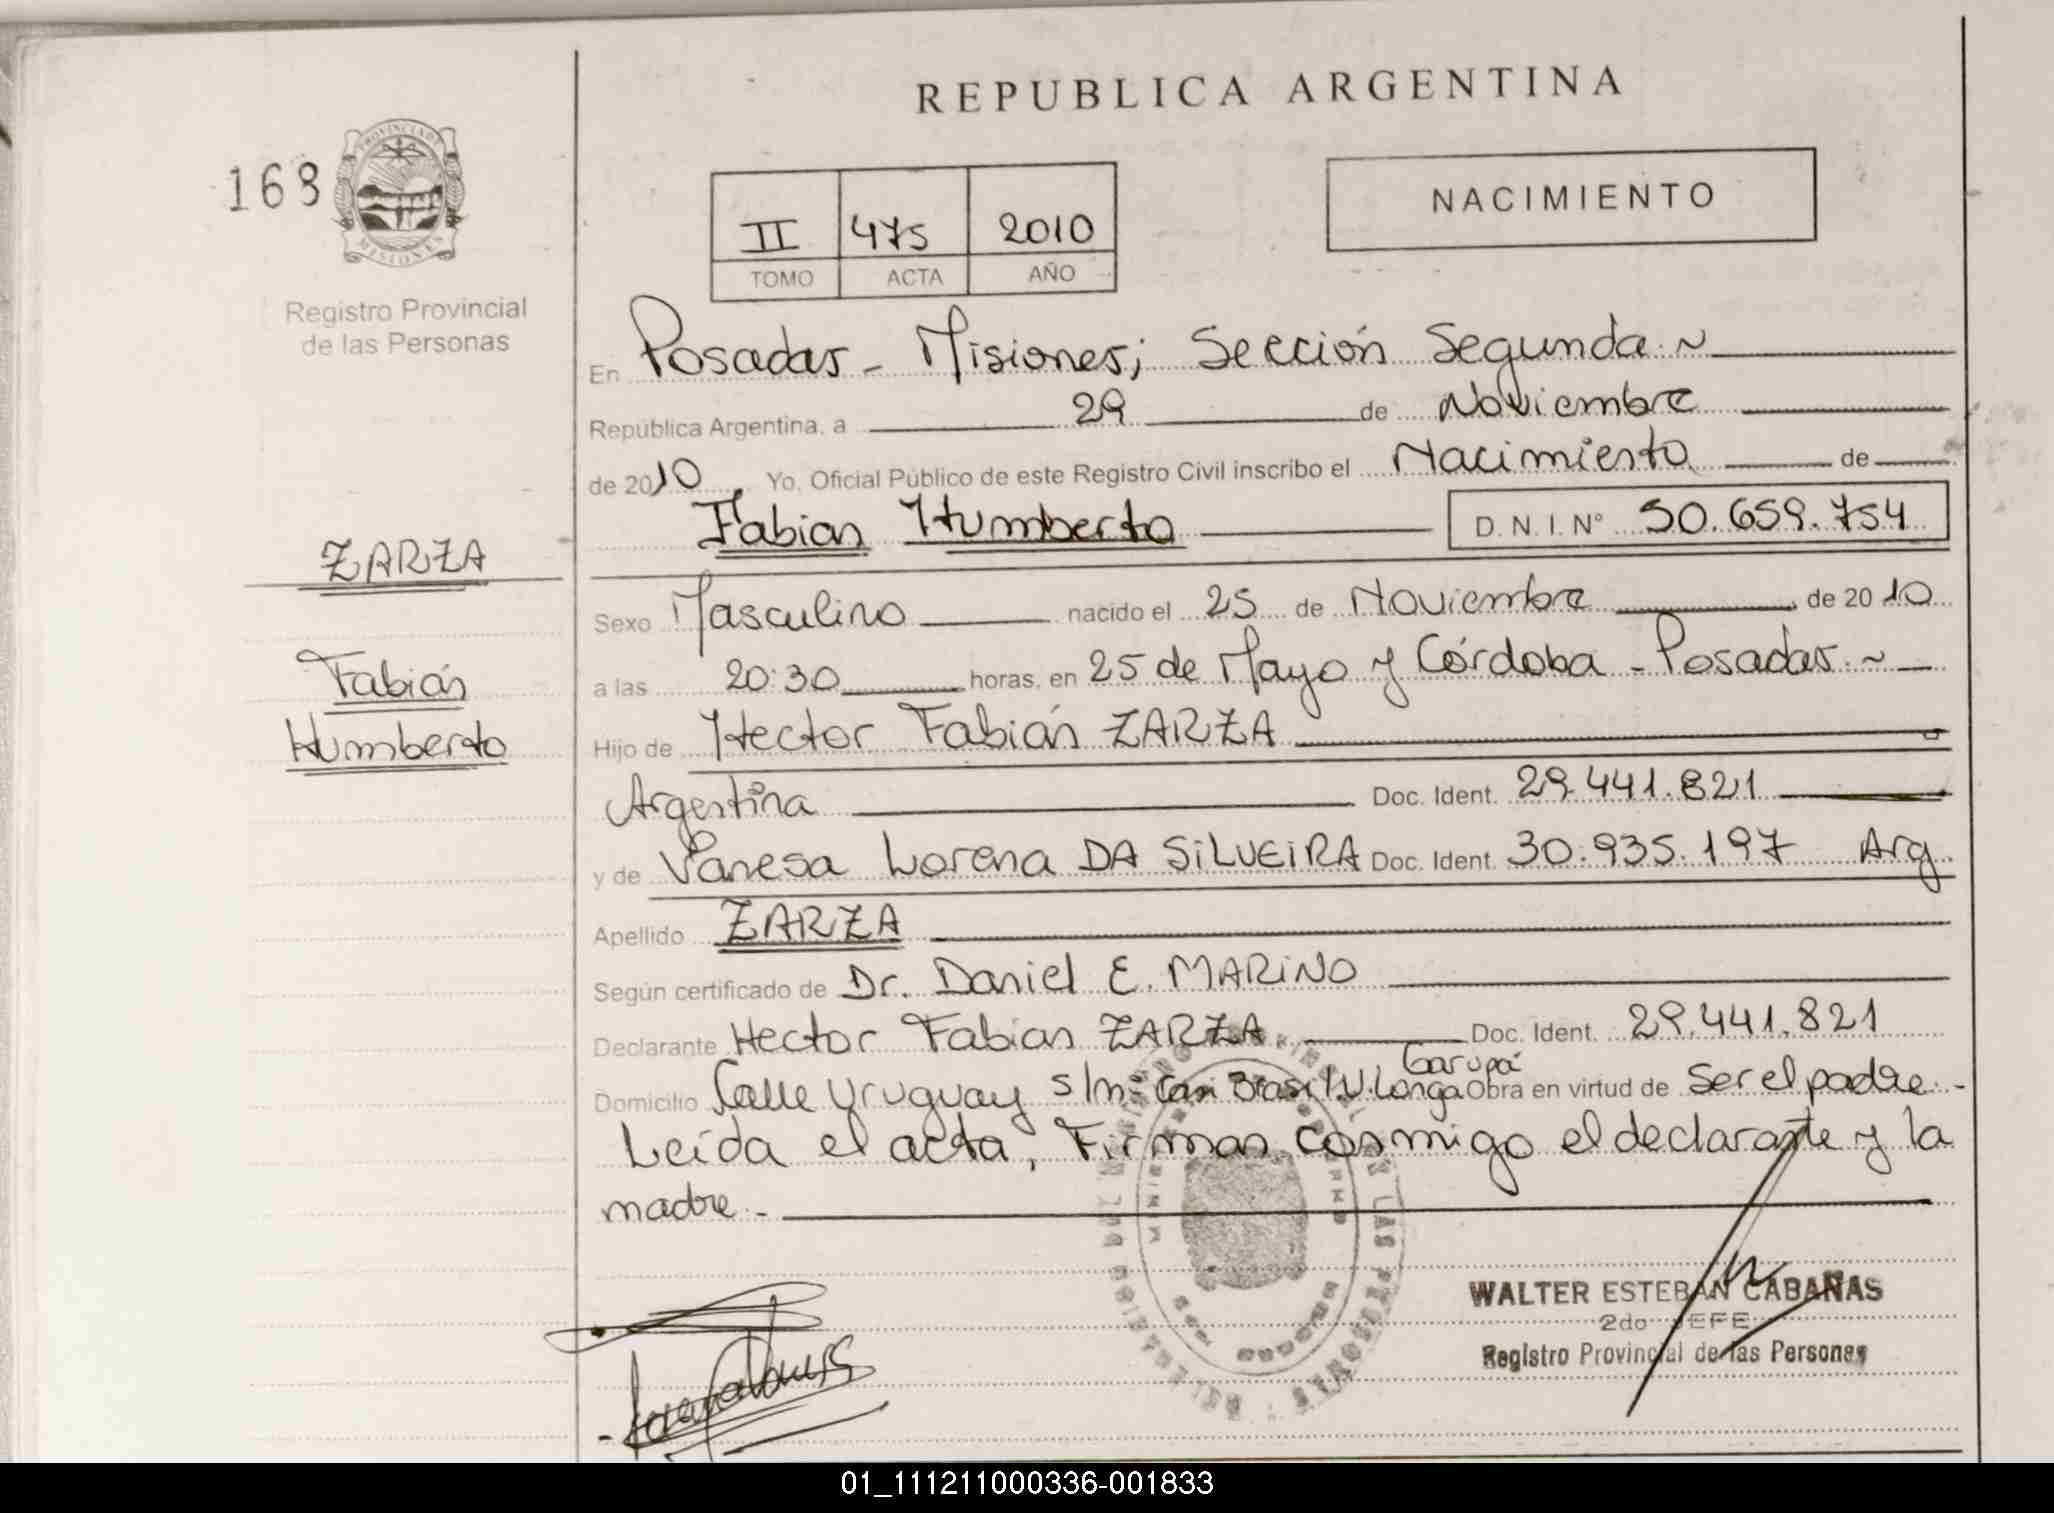 REPUBLICA ARGENTINA
168
PROVINCIA DE
MISIONES
Registro Provincial
de las Personas
II 475 2010
TOMO ACTA AÑO
NACIMIENTO
En Posadas - Misiones; Sección Segunda.~
República Argentina, a 29 de Noviembre
de 2010, Yo, Oficial Público de este Registro Civil inscribo el Nacimiento de
Fabian Humberto D.N.I. Nº 50.659.754
ZARZA
Fabián
Humberto
Sexo Masculino nacido el 25 de Noviembre de 2010
a las 20:30 horas, en 25 de Mayo y Córdoba - Posadas.~
Hijo de Hector Fabián ZARZA
Argentina Doc. Ident. 29.441.821
y de Vanesa Lorena DA SiLVEiRA Doc. Ident. 30.935.197 Arg.
Apellido ZARZA
Según certificado de Dr. Daniel E. MARiNO
Declarante Hector Fabian ZARZA Doc. Ident. 29.441.821
Domicilio Calle Uruguay s/nº Casi Brasil V. Longa Garupá Obra en virtud de Ser el padre.-
Leída el acta, Firman conmigo el declarante y la
madre.-
WALTER ESTEBAN CABAÑAS
2do JEFE
Registro Provincial de las Personas
01_111211000336-001833